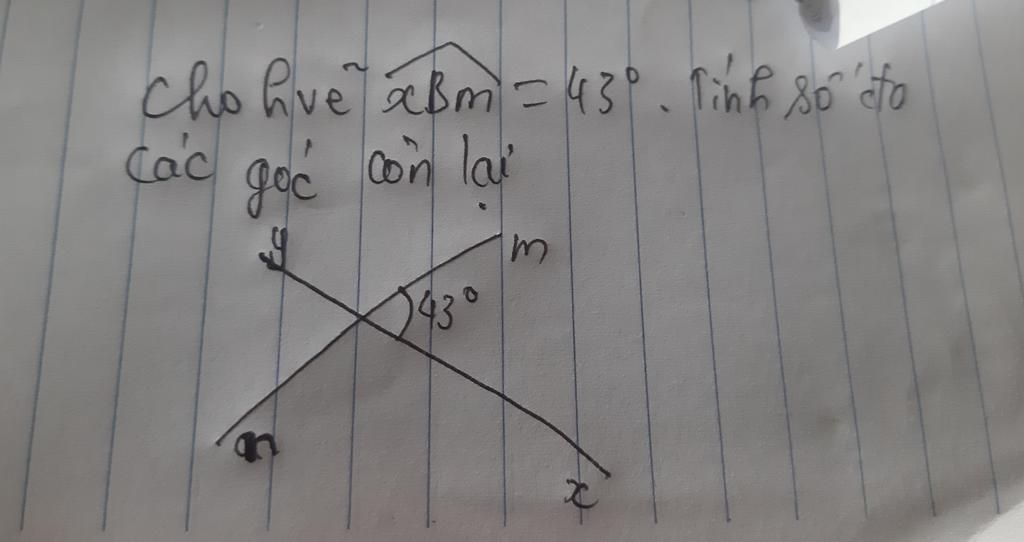 Cho hvẽ xBm = 43°. Tính số đo
các góc còn lại
y
m
43°
n
x